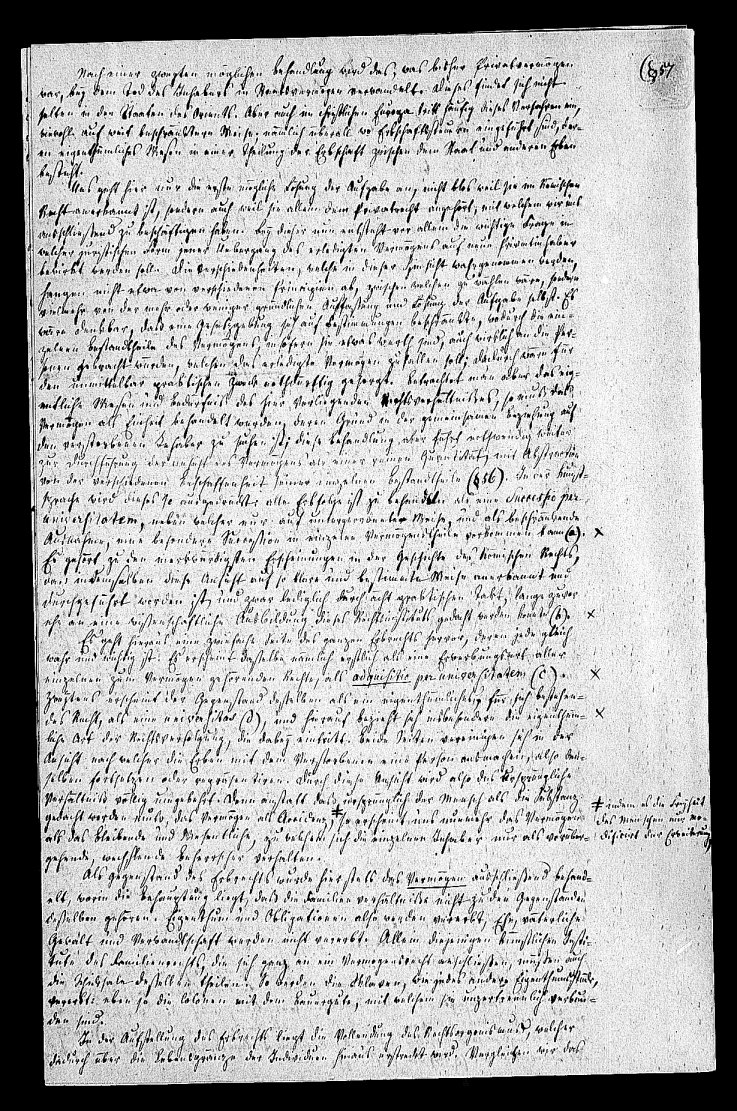 (§57
Nach einer zweyten möglichen Behandlung wird das, was bisher Privatvermögen
war, bey dem Tod des Inhabers in Staatsvermögen verwandelt. Dieses findet sich nicht
selten in den Staaten des Orients. Aber auch im christlichen Europa tritt häufig dieses Verfahren ein,
wiewohl auf weit beschränktere Weise, nämlich überall wo Erbschaftssteuern eingeführt sind, de-
ren eigenthümliches Wesen in einer Theilung der Erbschaft zwischen dem Staat und anderen Erben
besteht.
Uns geht hier nur die erste mögliche Lösung der Aufgabe an, nicht blos weil sie im Römischen
Recht anerkannt ist, sondern auch weil sie allein dem Privatrecht angehört, mit welchem wir uns
ausschließend zu beschäftigen haben. Bey dieser nun entsteht vor allem die wichtige Frage in
welcher juristischen Form jener Uebergang des erledigten Vermögens auf neue Privatinhaber
bewirkt werden soll. Die Verschiedenheiten, welche in dieser Hinsicht wahrgenommen werden,
hangen nicht etwa von verschiedenen Principien ab, zwischen welchen zu wählen wäre, sondern
vielmehr von der mehr oder weniger gründlichen Auffassung und Lösung der Aufgabe selbst. Es
wäre denkbar, daß eine Gesetzgebung sich auf Bestimmungen beschränkte, wodurch die ein-
zelnen Bestandtheile des Vermögens insofern sie etwas werth sind, auch wirklich an die Per-
sonen gebracht würden, welchen das erledigte Vermögen zufallen soll; dadurch wäre für
den unmittelbar praktischen Zweck nothdürftig gesorgt. Betrachtet man aber das ei-
gentliche Wesen und Bedürfnis des hier vorliegenden Rechtsverhältnisses, so muß das
Vermögen als Einheit behandelt werden, deren Grund in der gemeinsamen Beziehung auf
den verstorbenen Inhaber zu suchen ist; diese Behandlung aber führt nothwendig weiter
zur Durchführung der Ansicht des Vermögens als einer reinen Quantität, mit Abstraction
von der verschiedenen Beschaffenheit seiner einzelnen Bestandtheile (§56). In der Kunst-
sprache wird dieses so ausgedrückt: alle Erbfolge ist zu behandeln als eine Successio per
universitatem, neben welcher nur auf untergeordnete Weise, und als beschränkende
Ausnahme, eine besondere Succession in einzelne Vermögenstheile vorkommen kann (a). ×
Es gehört zu den merkwürdigsten Erscheinungen in der Geschichte des Römischen Rechts,
daß in demselben diese Ansicht auf so klare und bestimmte Weise anerkannt und
durchgeführt worden ist, und zwar lediglich durch ächt praktischen Takt, lange zuvor
ehe an eine wissenschaftliche Ausbildung dieses Rechtsinstituts gedacht werden konnte (b). ×
Es geht hieraus eine zwiefache Seite des ganzen Erbrechts hervor, deren jede gleich
wahr und wichtig ist. Es erscheint dasselbe nämlich erstlich als eine Erwerbungsart aller
einzelnen zum Vermögen gehörenden Rechte, als acquisitio per universitatem (c). ×
Zweytens erscheint der Gegenstand desselben als ein eigenthümliches, für sich bestehen-
des Recht, als eine universitas (d), und hierauf bezieht sich insbesondere die eigenthüm- ×
liche Art der Rechtsverfolgung, die dabey eintritt. Beide Seiten vereinigen sich in der
Ansicht nach welcher die Erben mit dem Verstorbenen eine Person ausmachen, also den-
selben fortsetzen oder repräsentiren. Durch diese Ansicht wird also das ursprüngliche
Verhältniß völlig umgekehrt. Denn anstatt daß ursprünglich der Mensch als die Substanz
gedacht werden mußte, das Vermögen als Accidens, ⧧ so erscheint uns nunmehr das Vermögen
⧧ indem es die Freyheit
des Menschen nur mo-
dificirt durch Erweiterung,
als das bleibende und Wesentliche, zu welchem sich die einzelnen Inhaber nur als vorüber-
gehende, wechslende Beherrscher verhalten.
Als Gegenstand des Erbrechts wurde hier stets das Vermögen ausschließend behan-
delt, worin die Behauptung liegt, daß die Familienverhältnisse nicht zu den Gegenständen
desselben gehören. Eigenthum und Obligationen also werden vererbt, Ehe, väterliche
Gewalt und Verwandtschaft werden nicht vererbt. Allein diejenigen künstlichen Insti-
tute des Familienrechts, die sich ganz an ein Vermögensrecht anschließen, müssen auch
die Schicksale desselben theilen. So werden die Sklaven, wie jedes andere Eigenthumsstück,
vererbt; eben so die Colonen mit dem Bauergute, mit welchem sie unzertrennlich verbun-
den sind.
In der Aufstellung des Erbrechts liegt die Vollendung des Rechtsorganismus, welcher
dadurch über die Lebensgränze der Individuen hinaus erstreckt wird. Vergleichen wir das